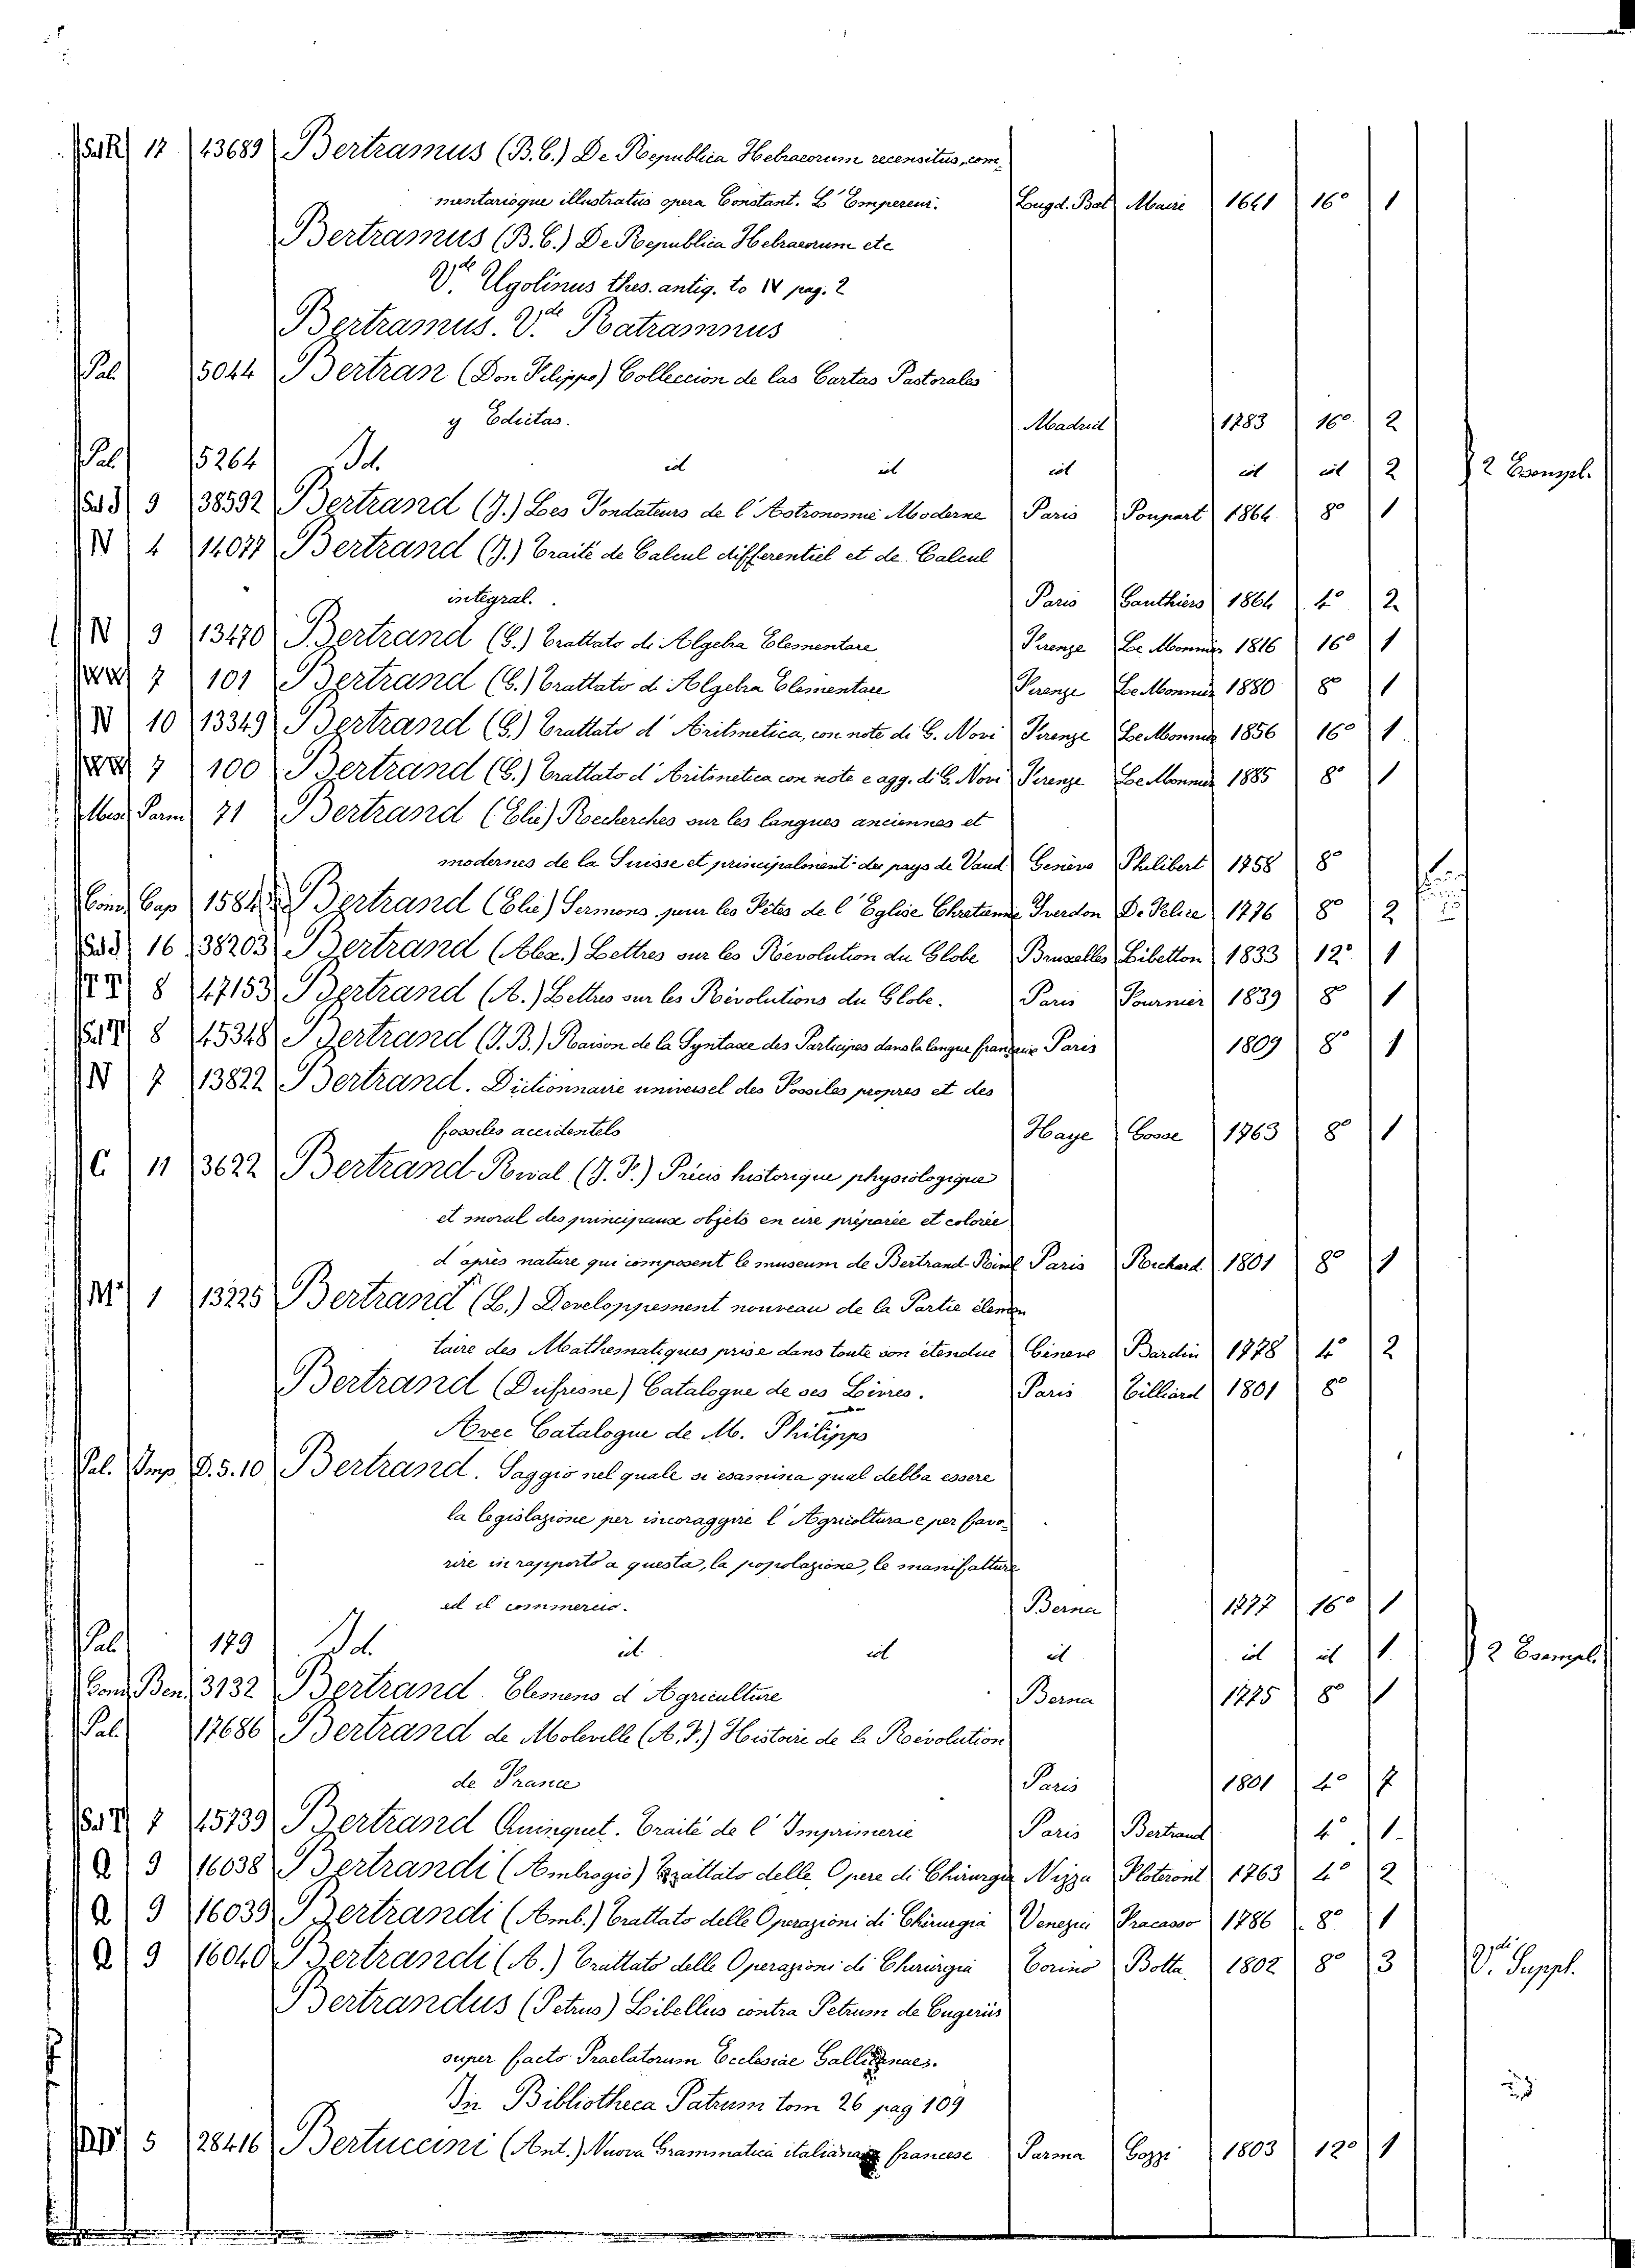 Sal.R 17 43689 Bertramus (B.C.) De Republica Hebraeorum recensitus, com-
mentarioque illustratus opera Constant. L'Empereur. Lugd. Bat Maire 1641 16° 1
Bertramus (B.C.) De Republica Hebraeorum etc
V.de Ugolinus thes. antiq. to IV pag. 2
Bertramus. V.de Ratramnus
Pal. 5044 Bertran (Don Filippo) Colleccion de las Cartas Pastorales
y Edictas. Madrid 1783 16° 2
Pal. 5264 Id. id id id id id 2 2 Esempl.
9 38592 Bertrand (J.) Les Fondateurs de l'Astronomie Moderne Paris Poupart 1864. 8° 1
N 4 14077 Bertrand (J.) Traité de Calcul differentiel et de Calcul
integral. Paris Gauthiers 1864 4° 2
N 9 13470 Bertrand (G.) Trattato di Algebra Elementare Firenze Le Monnier 1816 16° 1
7 101 Bertrand (G.) Trattato di Algebra Elementare Firenze Le Monnier 1880 8° 1
N 10 13349 Bertrand (G.) Trattato d'Aritmetica, con note di G. Novi Firenze Le Monnier 1856 16° 1
7 100 Bertrand (G.) Trattato d'Aritmetica con note e agg. di G. Novi Firenze Le Monnier 1885 8° 1
Misc. Parm 71 Bertrand (Elie) Recherches sur les langues anciennes et
modernes de la Suisse et principalement du pays de Vaud Genève Philibert 1758 8°
Cap 1584 Bertrand (Elie) Sermons pour les Fêtes de l'Eglise Chretienne Yverdon De Felice 1776 8° 2
16 38203 Bertrand (Alex.) Lettres sur les Revolution du Globe Bruxelles Libetton 1833 12° 1
8 47153 Bertrand (A.) Lettres sur les Révolutions du Globe. Paris Fournier 1839 8° 1
8 45348 Bertrand (J.B.) Raison de la Syntaxe des Participes dans la langue française Paris 1809 8° 1
N 7 13822 Bertrand. Dictionnaire universel des Fossiles propres et des
fossiles accidentels Haye Gosse 1763 8° 1
C 11 3622 Bertrand Rival (J.F.) Précis historique physiologique
et moral des principaux objets en cire préparée et colorée
d'après nature qui composent le museum de Bertrand-Rival Paris Richard 1801 8° 1
1 13225 Bertrand (L.) Developpement nouveau de la Partie élémen
taire des Mathematiques prise dans toute son étendue Gineve Bardin 1778 4° 2
Bertrand (Dufresne) Catalogue de ses Livres. Paris Tilliard 1801 8°
Avec Catalogue de M. Philipps
Pal. Imp D.5.10 Bertrand. Saggio nel quale si esamina qual debba essere
la legislazione per incoraggire l'Agricoltura e per favo-
rire in rapporto a questa, la popolazione, le manifatture
ed il commercio. Berna 1777 16° 1
Pal. 179 Id. id. id id id id 1. 2 Esempl.
Cond. Ben. 3132 Bertrand. Elemens d'Agriculture Berna 1775 8° 1
Pal. 17686 Bertrand de Moleville (A.F.) Histoire de la Révolution
de France Paris 1801 4° 7
1 45739 Bertrand Quinquet. Traité de l'Imprimerie Paris Bertrand 4° 1.
Q 9 16038 Bertrandi (Ambrogio) Trattato delle Opere di Chirurgia Nizza Floteront 1763 4° 2
Q 9 16039 Bertrandi (Amb.) Trattato delle Operazioni di Chirurgia Venezia Fracasso 1786 8° 1
Q 9 16040 Bertrandi (A.) Trattato delle Operazioni di Chirurgia Torino Botta. 1802 8° 3 V.di Suppl.
Bertrandus (Petrus) Libellus contra Petrum de Cugeriis
super facto Praelatorum Ecclesiae Gallicanae.
In Bibliotheca Patrum tom 26 pag 109
5 28416 Bertuccini (Ant.) Nuova Grammatica italiana francese Parma Gozzi 1803 12° 1